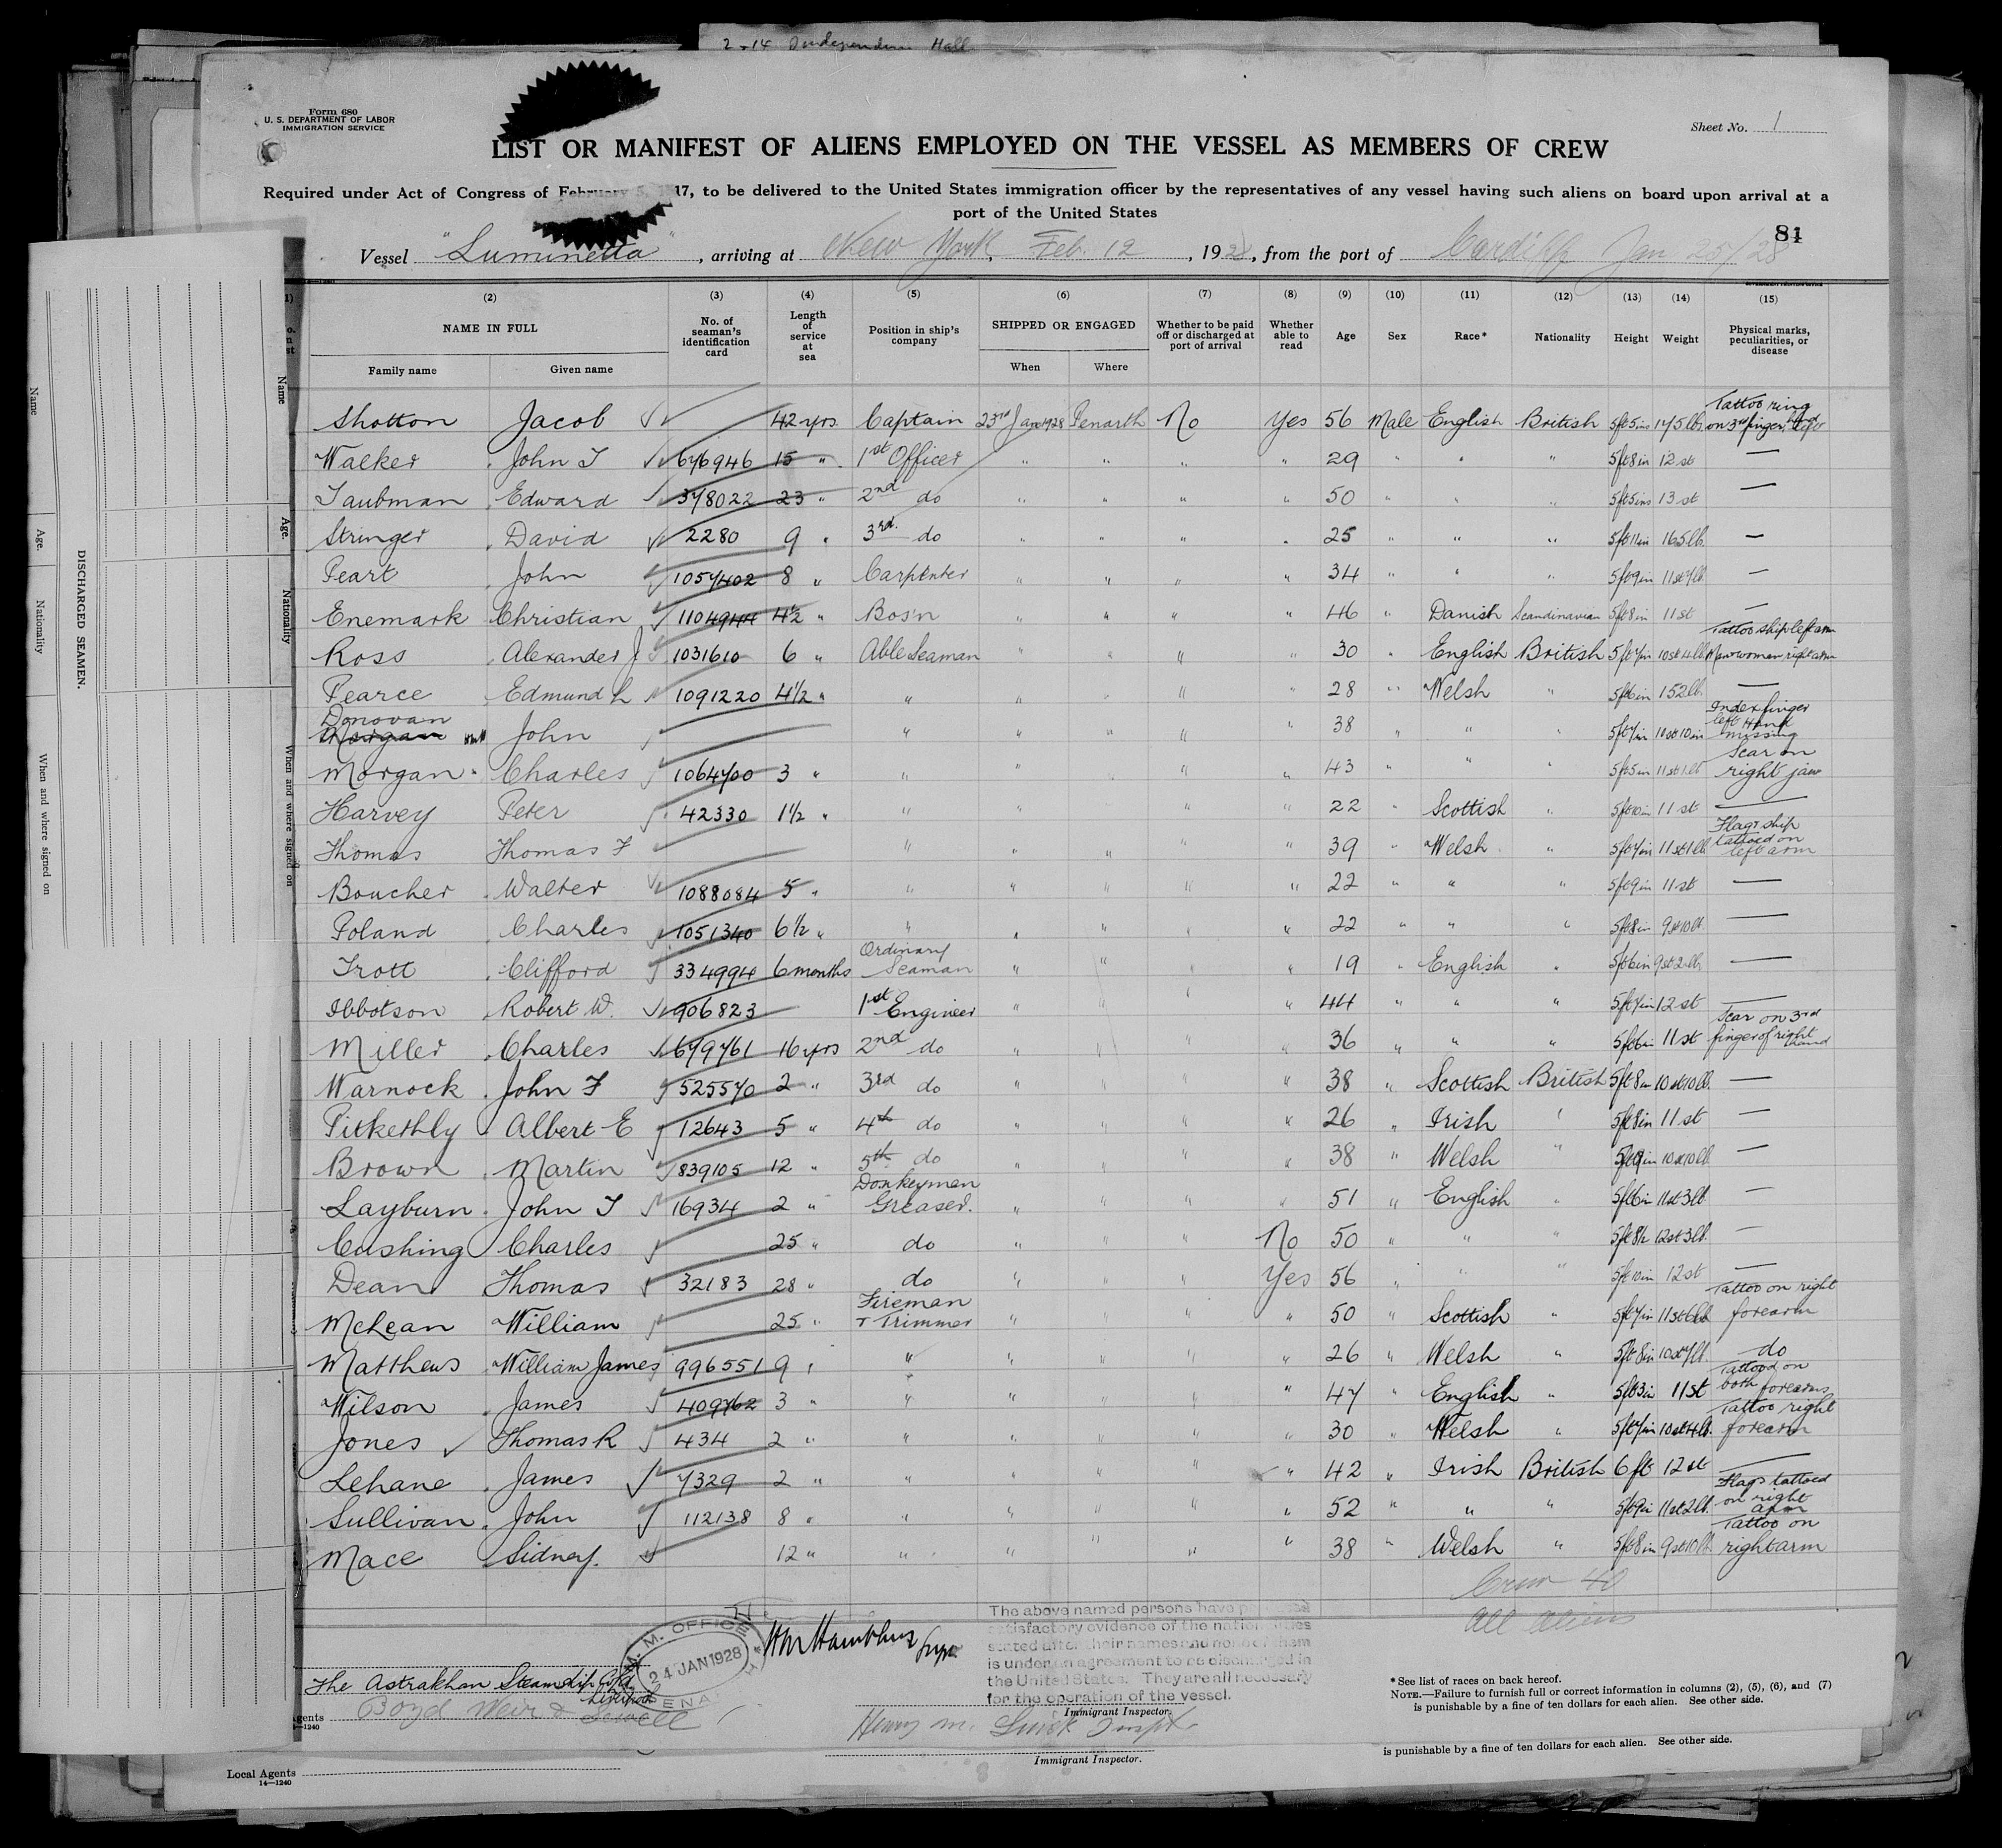 2-14 Independence Hall
Form 680
U. S. DEPARTMENT OF LABOR
IMMIGRATION SERVICE
Sheet No. 1
LIST OR MANIFEST OF ALIENS EMPLOYED ON THE VESSEL AS MEMBERS OF CREW
Required under Act of Congress of February 5, 1917, to be delivered to the United States immigration officer by the representatives of any vessel having such aliens on board upon arrival at a
port of the United States
81
Vessel "Luminetta", arriving at New York, Feb. 12, 1928, from the port of Cardiff Jan 25/28
(2) (3) (4) (5) (6) (7) (8) (9) (10) (11) (12) (13) (14) (15)
NAME IN FULL No. of seaman's identification card Length of service at sea Position in ship's company SHIPPED OR ENGAGED Whether to be paid off or discharged at port of arrival Whether able to read Age Sex Race* Nationality Height Weight Physical marks, peculiarities, or disease
Family name Given name When Where
Shotton Jacob 42 yrs. Captain 23rd Jan 1928 Penarth No Yes 56 Male English British 5ft 5ins 175lb Tattoo ring on 3rd finger left
Walker John T 676946 15 " 1st Officer " " " " 29 " " " 5ft8in 12 st —
Taubman Edward 378022 23 " 2nd do " " " " 50 " " " 5ft5ins 13 st —
Stringer David 2280 9 " 3rd. do " " " " 25 " " " 5ft11in 165lb. —
Peart John 1057402 8 " Carpenter " " " " 34 " " " 5ft9in 11st7lb. —
Enemark Christian 1104944 4½ " Bos'n " " " " 46 " Danish Scandinavian 5ft8in 11st —
Ross Alexander J 1031610 6 " Able Seaman " " " " 30 " English British 5ft7in 10st4lb Tattoo ship left arm Man woman right arm
Pearce Edmund L 1091220 4½ " " " " " " 28 " Welsh " 5ft6in 152lb. —
Donovan
Morgan John " " " " " 38 " " " 5ft7in 10st10in Index finger left Hand missing
Morgan Charles 1064700 3 " " " " " " 43 " " " 5ft5in 11st1lb Scar on right jaw
Harvey Peter 42330 1½ " " " " " " 22 " Scottish " 5ft10in 11 st —
Thomas Thomas F " " " " " 39 " Welsh " 5ft7in 11st1lb Flag ship tattoed on left arm
Boucher Walter 1088084 5 " " " " " " 22 " " " 5ft9in 11st —
Poland Charles 1051340 6½ " " " " " " 22 " " " 5ft8in 9st10lb. —
Trott Clifford 334994 6 months Ordinary Seaman " " " " 19 " English " 5ft6in 9st2lb. —
Ibbotson Robert W. 906823 1st Engineer " " " " 44 " " " 5ft7in 12 st —
Miller Charles 679761 16 yrs 2nd do " " " " 36 " " " 5ft6in 11st Scar on 3rd finger of right hand
Warnock John F 525570 2 " 3rd do " " " " 38 " Scottish British 5ft8in 10st10lb. —
Pitkethly Albert E 12643 5 " 4th do " " " " 26 " Irish " 5ft8in 11st —
Brown Martin 839105 12 " 5th do " " " " 38 " Welsh " 5ft9in 10st10lb —
Layburn John T 16934 2 " Donkeyman Greaser. " " " " 51 " English " 5ft6in 11st3lb. —
Cushing Charles 25 " do " " " No 50 " " " 5ft8½ 12st3lb. —
Dean Thomas 32183 28 " do " " " Yes 56 " " " 5ft10in 12st —
McLean William 25 " Fireman + Trimmer " " " " 50 " Scottish " 5ft7in 11st6lb Tattoo on right forearm
Matthews William James 996551 9 " " " " " " 26 " Welsh " 5ft8in 10st7lb. do
Wilson James 409762 3 " " " " " " 47 " English " 5ft3in 11st Tattood on both forearms
Jones Thomas R 434 2 " " " " " " 30 " Welsh " 5ft7in 10st4lb. Tattoo right forearm
Lehane James 7329 2 " " " " " " 42 " Irish British 6 ft 12st —
Sullivan John 112138 8 " " " " " " 52 " " " 5ft9in 11st2lb. Flags tattoed on right arm
Mace Sidney. 12 " " " " " " 38 " Welsh " 5ft8in 9st10lb. Tattoo on right arm
Crew 40
All aliens
M. M. OFFICE
24 JAN 1928
The above named persons have
satisfactory evidence of the nationalities
stated after their names and none of them
is under an agreement to be discharged in
the United States. They are all necessary
for the operation of the vessel.
The Astrakhan Steamship Co Ltd
Liverpool
Boyd Weir & Sewell
Agents
14—1240
Immigrant Inspector.
Henry M. Insptr.
*See list of races on back hereof.
NOTE.—Failure to furnish full or correct information in columns (2), (5), (6), and (7)
is punishable by a fine of ten dollars for each alien. See other side.
is punishable by a fine of ten dollars for each alien. See other side.
Local Agents
14—1240
Immigrant Inspector.
DISCHARGED SEAMEN.
Name Age. Nationality When and where signed on
Name Age. Nationality When and where signed on